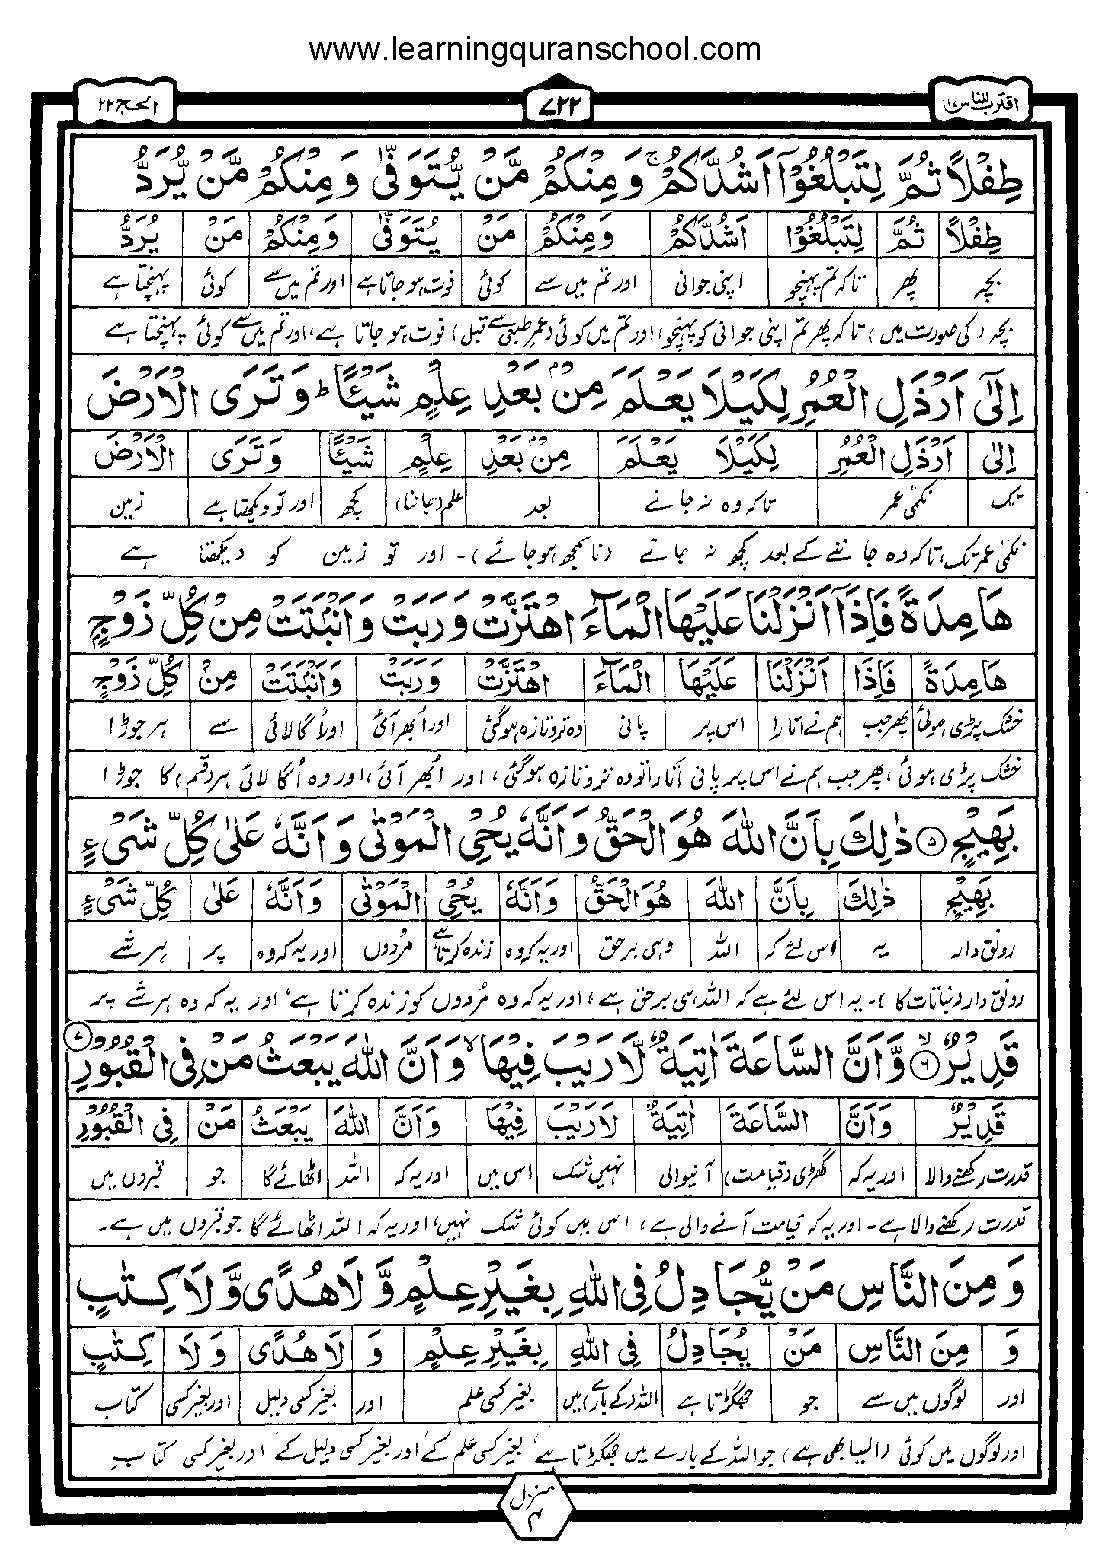 www.learningquranschool.com
اقترب للناس ١٧ ٧٢٢ الحج ٢٢
طِفْلًا ثُمَّ لِتَبْلُغُوْۤا اَشُدَّكُمْ ۚ وَمِنْكُمْ مَّنْ يُّتَوَفّٰى وَمِنْكُمْ مَّنْ يُّرَدُّ
طِفْلًا ثُمَّ لِتَبْلُغُوْا اَشُدَّكُمْ وَمِنْكُمْ مَنْ يُتَوَفّٰى وَمِنْكُمْ مَنْ يُرَدُّ
بچہ پھر تاکہ تم پہنچو اپنی جوانی اور تم میں سے کوئی فوت ہو جاتا ہے اور تم میں سے کوئی پہنچتا ہے
بچہ (کی صورت میں) تاکہ پھر تم اپنی جوانی کو پہنچو، اور تم میں کوئی (عمر طبعی سے قبل) فوت ہو جاتا ہے، اور تم میں سے کوئی پہنچتا ہے
اِلٰۤى اَرْذَلِ الْعُمُرِ لِكَيْلَا يَعْلَمَ مِنْۢ بَعْدِ عِلْمٍ شَيْـًٔا ؕ وَتَرَى الْاَرْضَ
اِلٰى اَرْذَلِ الْعُمُرِ لِكَيْلَا يَعْلَمَ مِنْۢ بَعْدِ عِلْمٍ شَيْـًٔا وَتَرَى الْاَرْضَ
تک نکمی عمر تاکہ وہ نہ جانے بعد علم (جاننا) کچھ اور تو دیکھتا ہے زمین
نکمی عمر تک، تاکہ وہ جاننے کے بعد کچھ نہ جانے (ناسمجھ ہو جائے)۔ اور تو زمین کو دیکھتا ہے
هَامِدَةً فَاِذَاۤ اَنْزَلْنَا عَلَيْهَا الْمَآءَ اهْتَزَّتْ وَرَبَتْ وَاَنْۢبَتَتْ مِنْ كُلِّ زَوْجٍۭ
هَامِدَةً فَاِذَا اَنْزَلْنَا عَلَيْهَا الْمَآءَ اهْتَزَّتْ وَرَبَتْ وَاَنْۢبَتَتْ مِنْ كُلِّ زَوْجٍۭ
خشک پڑی ہوئی پھر جب ہم نے اتارا اس پر پانی وہ تر و تازہ ہو گئی اور ابھر آئی اور اُگا لائی سے ہر جوڑا
خشک پڑی ہوئی، پھر جب ہم نے اس پر پانی اتارا تو وہ تر و تازہ ہو گئی، اور اُبھر آئی، اور وہ اُگا لائی ہر (قسم) کا جوڑا
بَهِيْجٍ ۝٥ ذٰلِكَ بِاَنَّ اللّٰهَ هُوَ الْحَقُّ وَاَنَّهٗ يُحْيِ الْمَوْتٰى وَاَنَّهٗ عَلٰى كُلِّ شَيْءٍ
بَهِيْجٍ ذٰلِكَ بِاَنَّ اللّٰهَ هُوَ الْحَقُّ وَاَنَّهٗ يُحْيِ الْمَوْتٰى وَاَنَّهٗ عَلٰى كُلِّ شَيْءٍ
رونق دار یہ اس لئے کہ اللہ وہی برحق اور یہ کہ وہ زندہ کرتا ہے مُردوں اور یہ کہ وہ پر ہر شے
رونق دار (نباتات کا)۔ یہ اس لئے ہے کہ اللہ ہی برحق ہے، اور یہ کہ وہ مُردوں کو زندہ کرتا ہے، اور یہ کہ وہ ہر شے پر
قَدِيْرٌ ۝٦ وَّاَنَّ السَّاعَةَ اٰتِيَةٌ لَّا رَيْبَ فِيْهَا ۙ وَاَنَّ اللّٰهَ يَبْعَثُ مَنْ فِى الْقُبُوْرِ ۝٧
قَدِيْرٌ وَاَنَّ السَّاعَةَ اٰتِيَةٌ لَا رَيْبَ فِيْهَا وَاَنَّ اللّٰهَ يَبْعَثُ مَنْ فِى الْقُبُوْرِ
قدرت رکھنے والا اور یہ کہ گھڑی (قیامت) آنیوالی نہیں شک اس میں اور یہ کہ اللہ اٹھائے گا جو قبروں میں
قدرت رکھنے والا ہے۔ اور یہ کہ قیامت آنے والی ہے، اس میں کوئی شک نہیں، اور یہ کہ اللہ اٹھائے گا جو قبروں میں ہے۔
وَمِنَ النَّاسِ مَنْ يُّجَادِلُ فِى اللّٰهِ بِغَيْرِ عِلْمٍ وَّلَا هُدًى وَّلَا كِتٰبٍ
وَ مِنَ النَّاسِ مَنْ يُجَادِلُ فِى اللّٰهِ بِغَيْرِ عِلْمٍ وَ لَا هُدًى وَلَا كِتٰبٍ
اور لوگوں میں سے جو جھگڑتا ہے اللہ کے بارے میں بغیر کسی علم اور بغیر کسی دلیل اور بغیر کسی کتاب
اور لوگوں میں کوئی (ایسا بھی ہے) جو اللہ کے بارے میں جھگڑتا ہے، بغیر کسی علم کے اور بغیر کسی دلیل کے اور بغیر کسی کتاب
منزل ۴